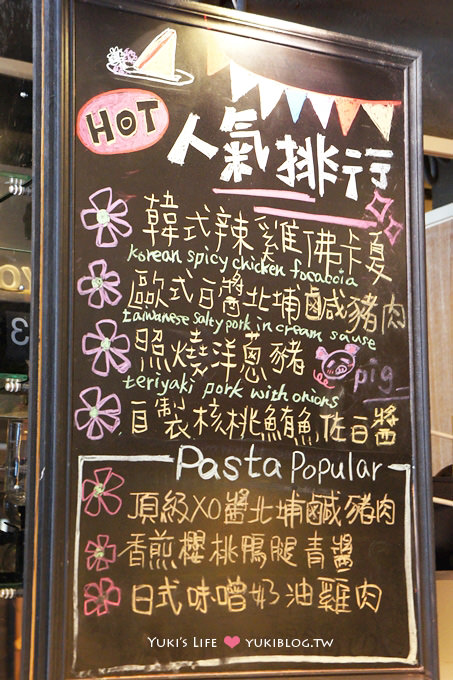 HOT
人氣排行
韓式辣雞佛卡夏
korean spicy chicken focaccia
歐式白醬北埔鹹豬肉
taiwanese salty pork in cream sause
照燒洋蔥豬
pig
teriyaki pork with onions
自製核桃鮪魚佐白醬
Pasta Popular
頂級XO醬北埔鹹豬肉
香煎櫻桃鴨腿青醬
日式味噌奶油雞肉
YUKI'S LIFE ❤ YUKIBLOG.TW